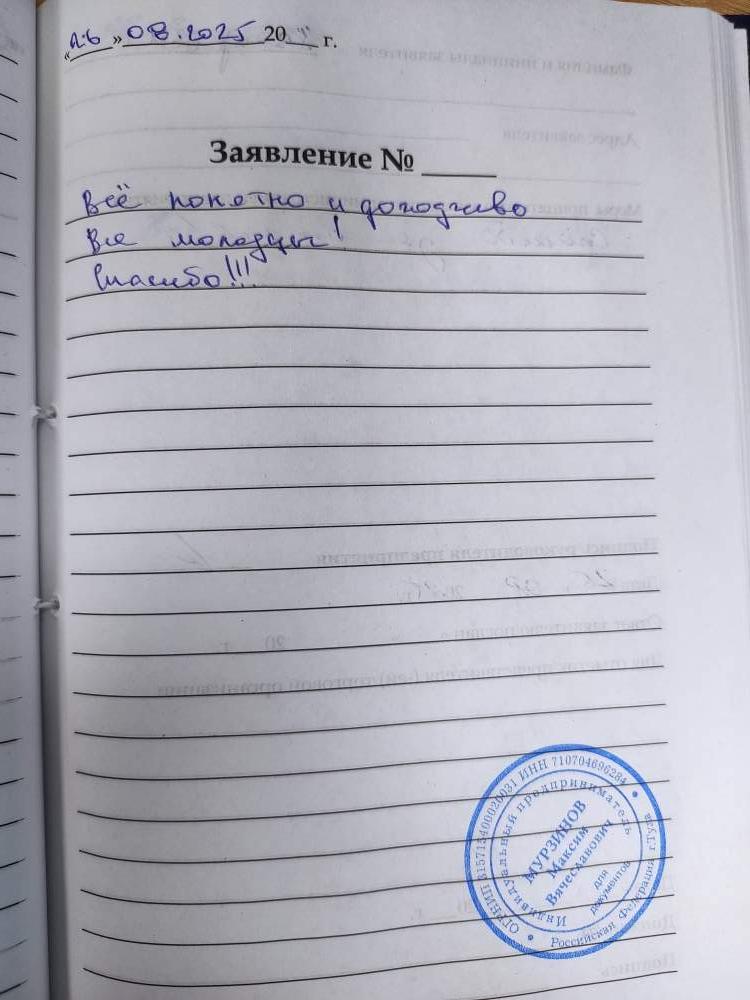 «26» 08.2025 20 г.
Заявление №
Всё понятно и доходчиво
Все молодцы!
Спасибо!!!
ИНН 710704696284
Российская Федерация г.Тула
Индивидуальный предприниматель
МУРЗИНОВ
Максим
Вячеславович
для
документов